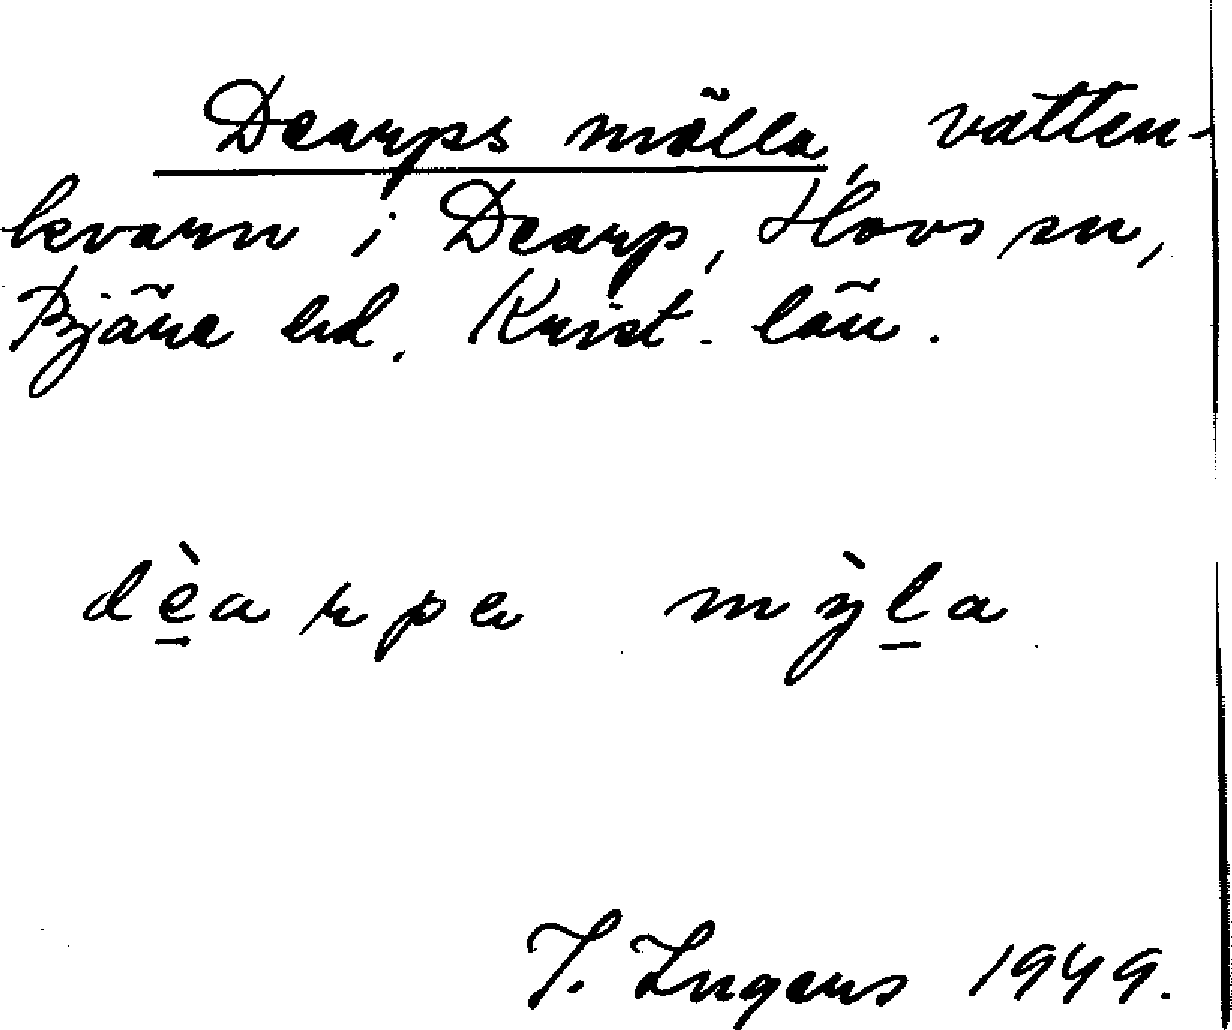 Dearps mölla, vatten-
kvarn i Dearp, Hovs sn,
Bjäre hd. Krist. län.
dèarpa mỳla
I. Ingers 1949.